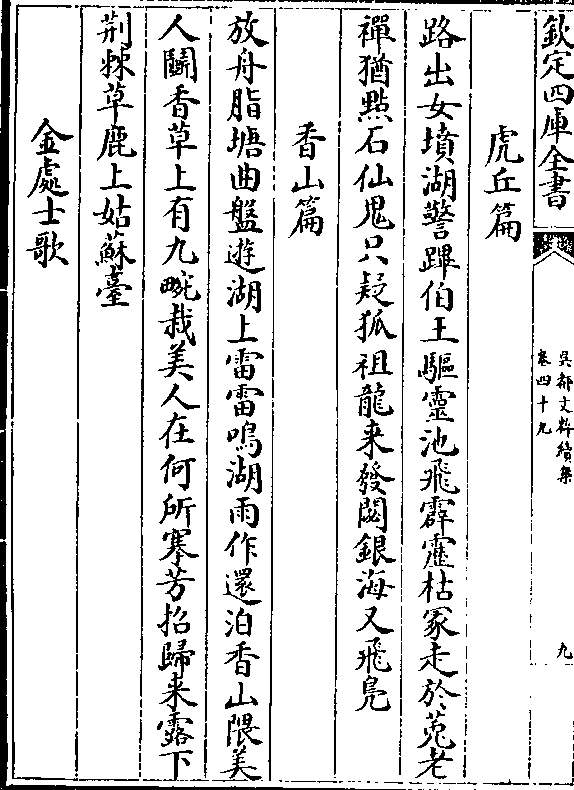 欽定四庫全書
吳都文粹續集
卷四十九
九
虎丘篇
路出女墳湖警蹕伯王驅靈池飛霹靂枯冢走於菟老
禪猶㸃石仙鬼只疑狐祖龍来發闕銀海又飛鳬
香山篇
放舟脂塘曲盤遊湖上雷雷鳴湖雨作還泊香山隈美
人鬭香草上有九畹栽美人在何所搴芳招歸来露下
荆棘草鹿上姑蘇臺
金處士歌